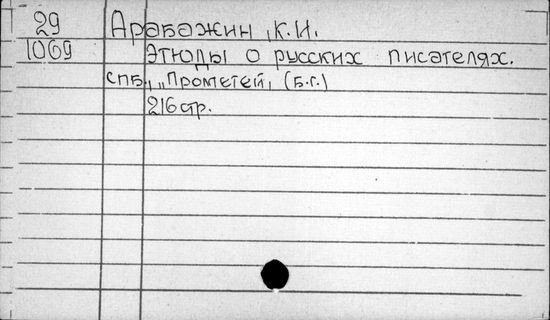 29 Арабажин, К.И.
1069 Этюды о русских писателях.
СПБ., „Прометей, (б.г.)
216 стр.